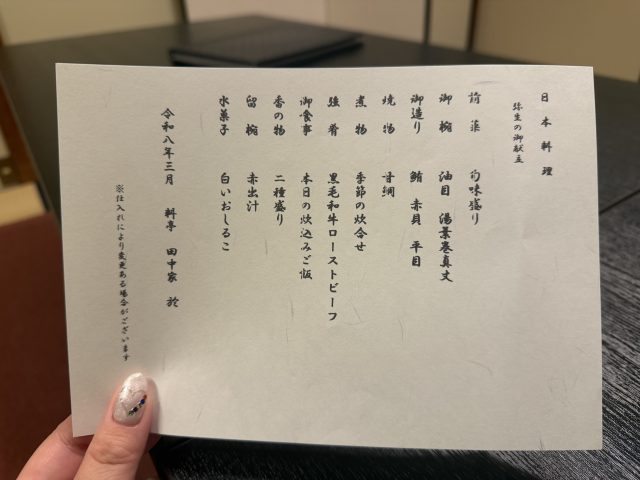 日本料理
弥生の御献立
前菜　旬味盛り
御椀　油目　湯葉巻真丈
御造り　鮪　赤貝　平目
焼物　甘鯛
煮物　季節の炊合せ
強肴　黒毛和牛ローストビーフ
御食事　本日の炊込みご飯
香の物　二種盛り
留椀　赤出汁
水菓子　白いおしるこ
令和八年三月　料亭　田中家　於
※仕入れにより変更ある場合がございます